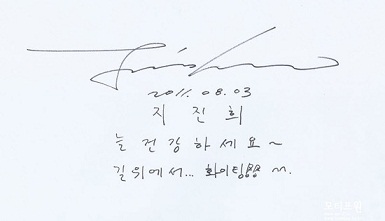 2011. 08. 03
지 진 희
늘 건강하세요~
길 위에서... 화이팅 ^^.